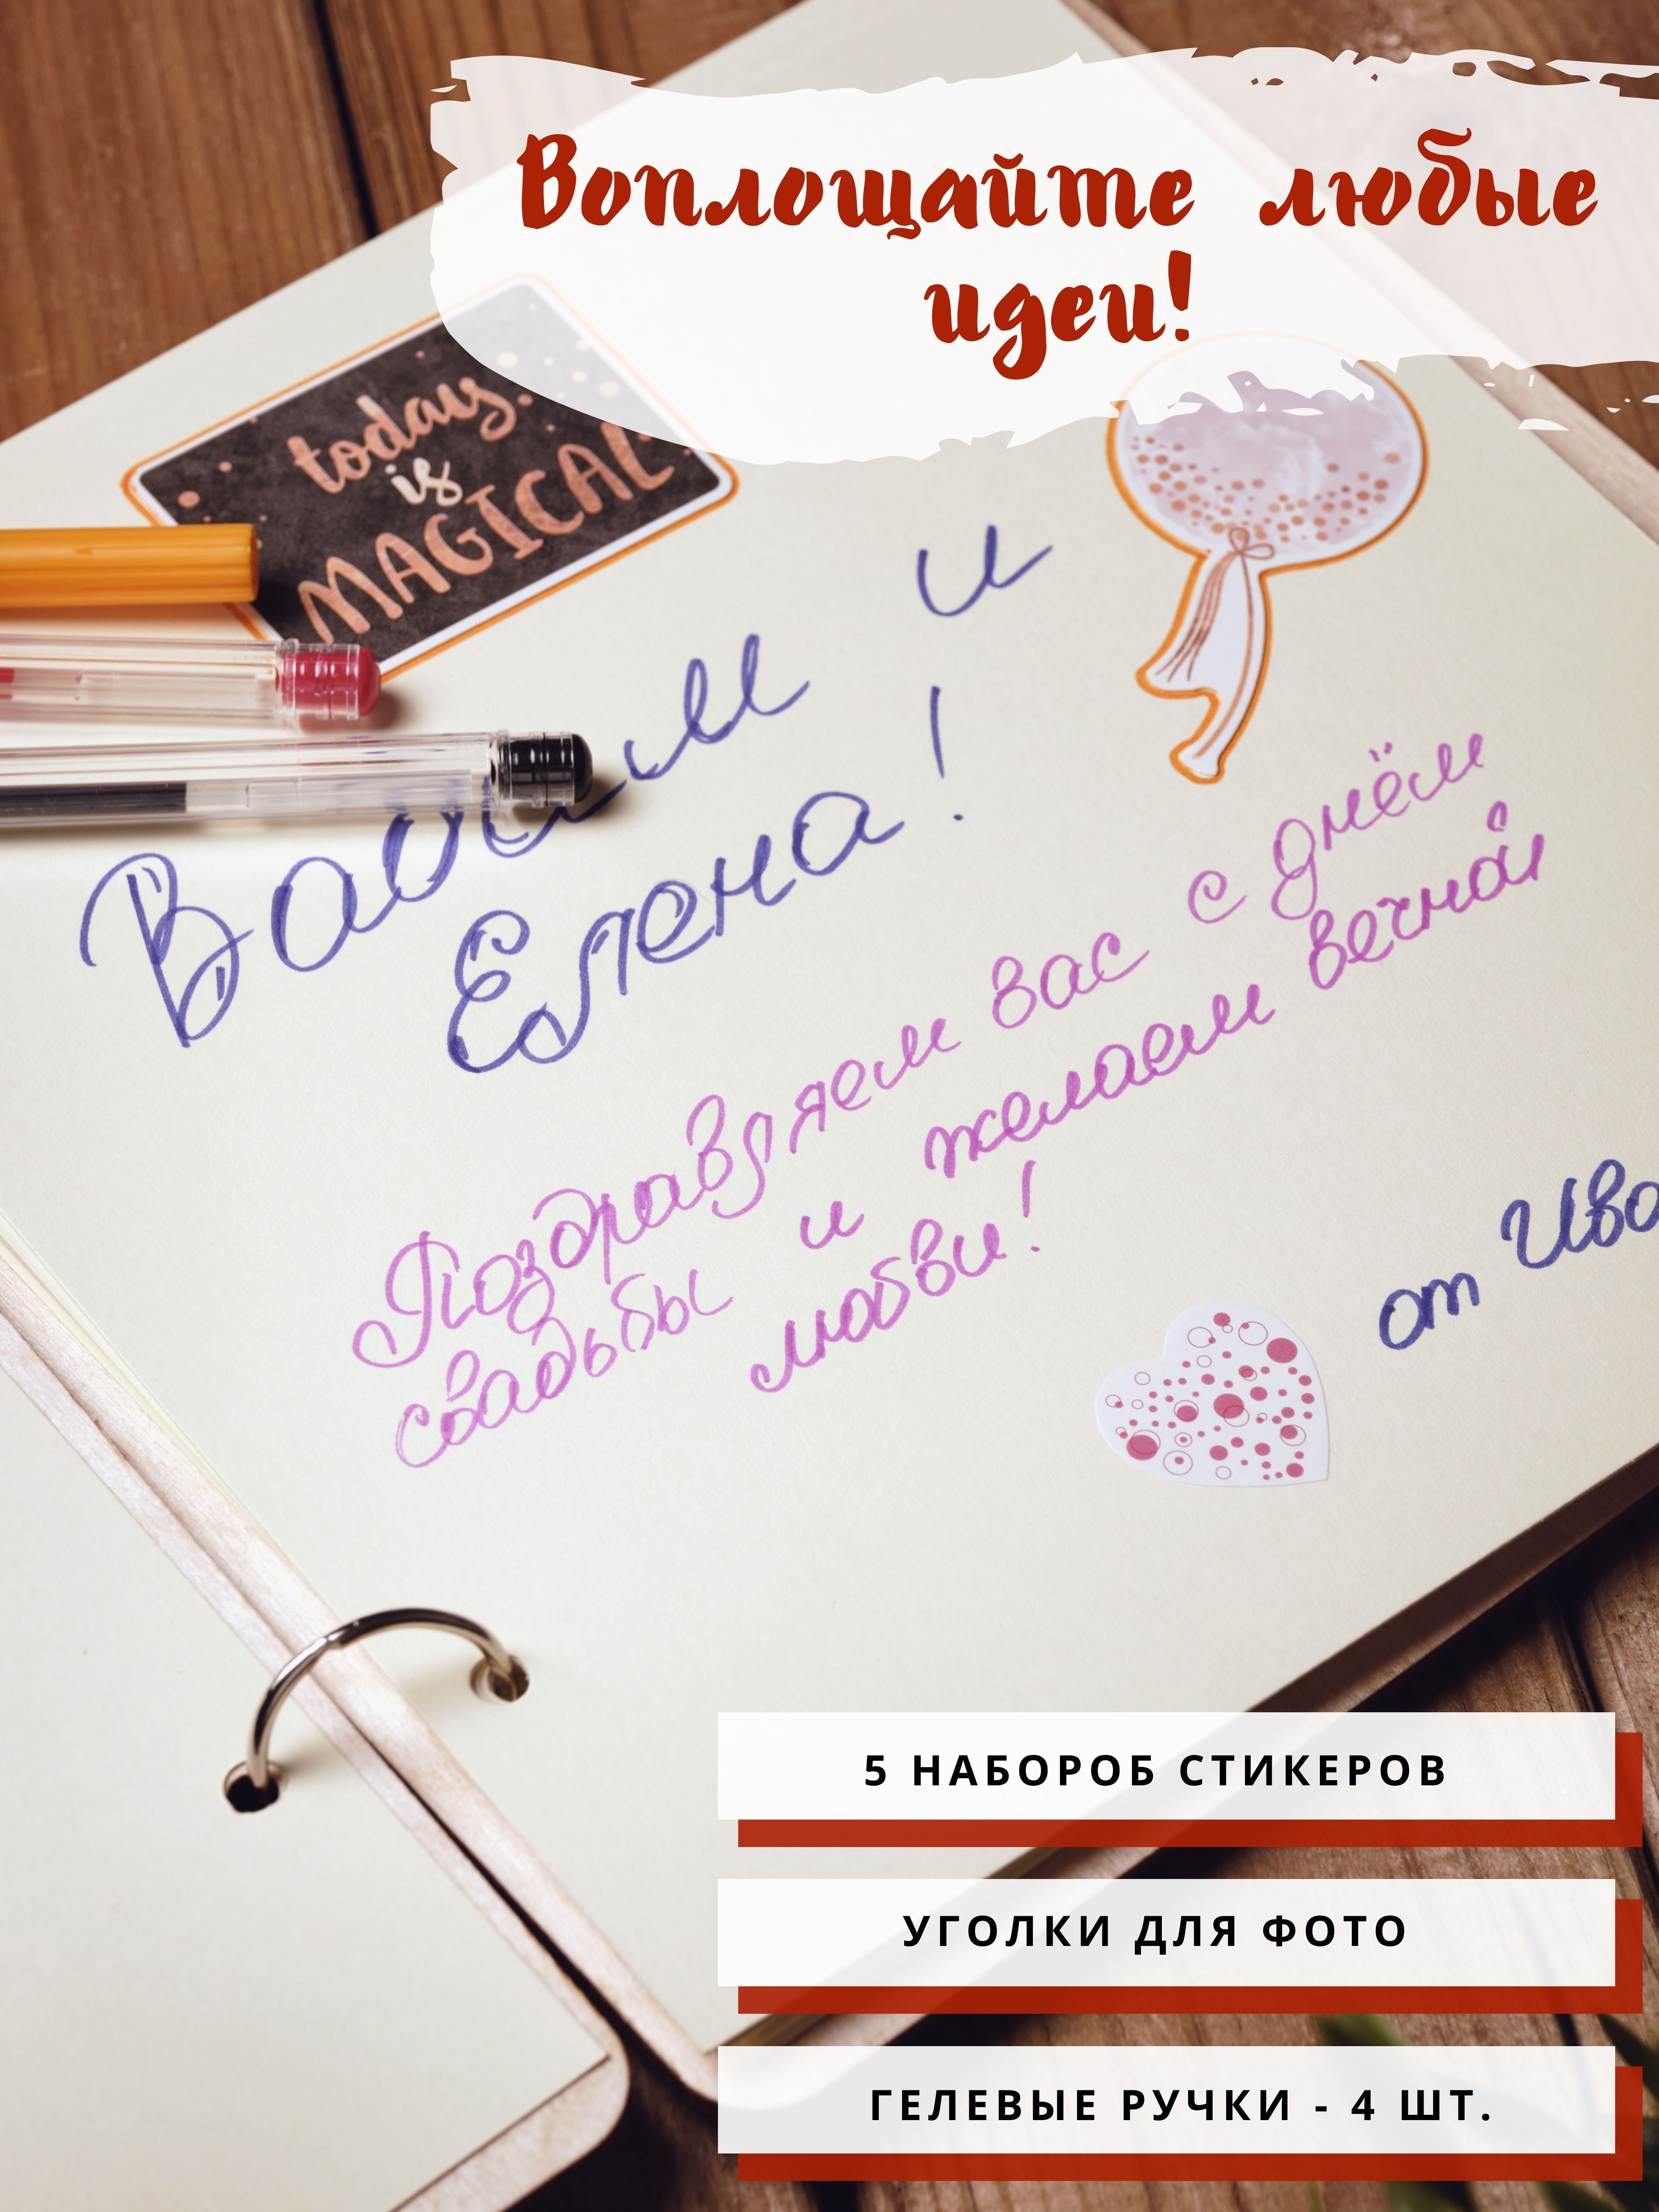 Воплощайте любые
идеи!
today
is
MAGICAL
Вадим и
Елена!
Поздравляем вас с днём
свадьбы и желаем вечной
любви!
от Ива
5 НАБОРОБ СТИКЕРОВ
УГОЛКИ ДЛЯ ФОТО
ГЕЛЕВЫЕ РУЧКИ - 4 ШТ.